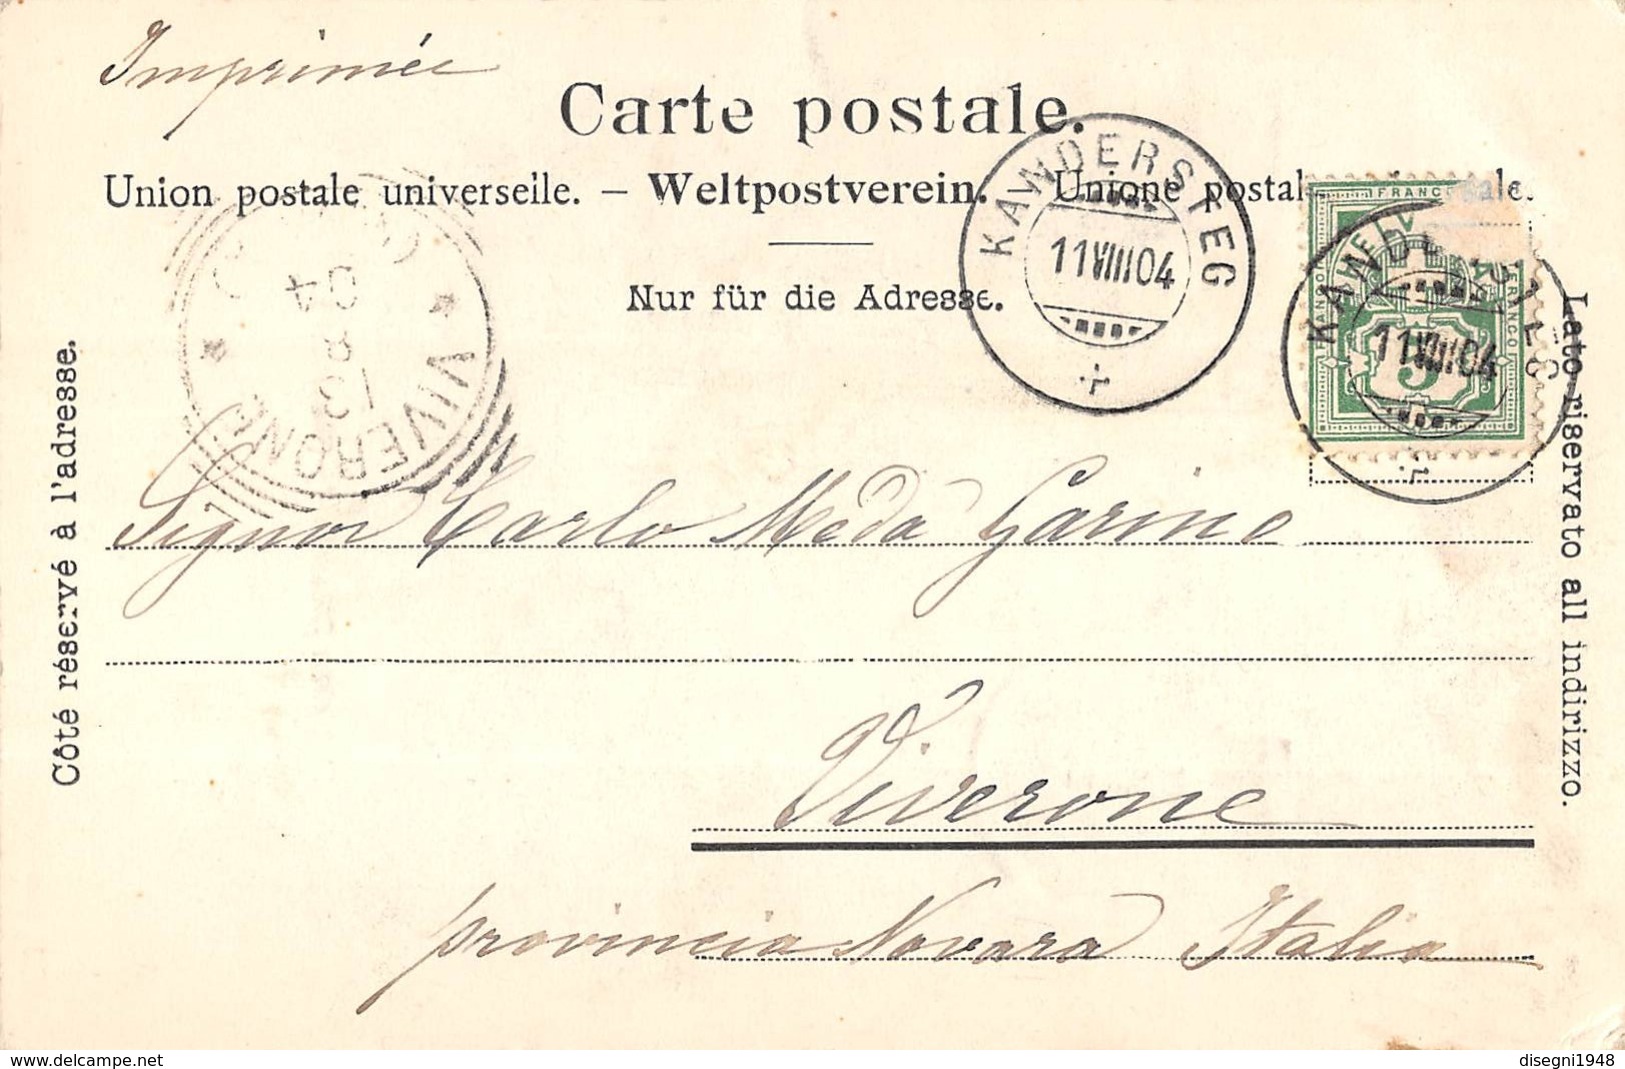 Imprimée
Carte postale.
Union postale universelle. – Weltpostverein. – Unione postale
Nur für die Adresse.
KANDERSTEG
11 VIII 04
KANDERSTEG
11 VIII 04
FRANCO
FRANCO
5
VIVERONE
13
8
04
Côté réservé à l'adresse.
Lato riservato all indirizzo.
Signor Carlo Meda Garino
Viverone
provincia Novara Italia
delcampe.net
disegni1948